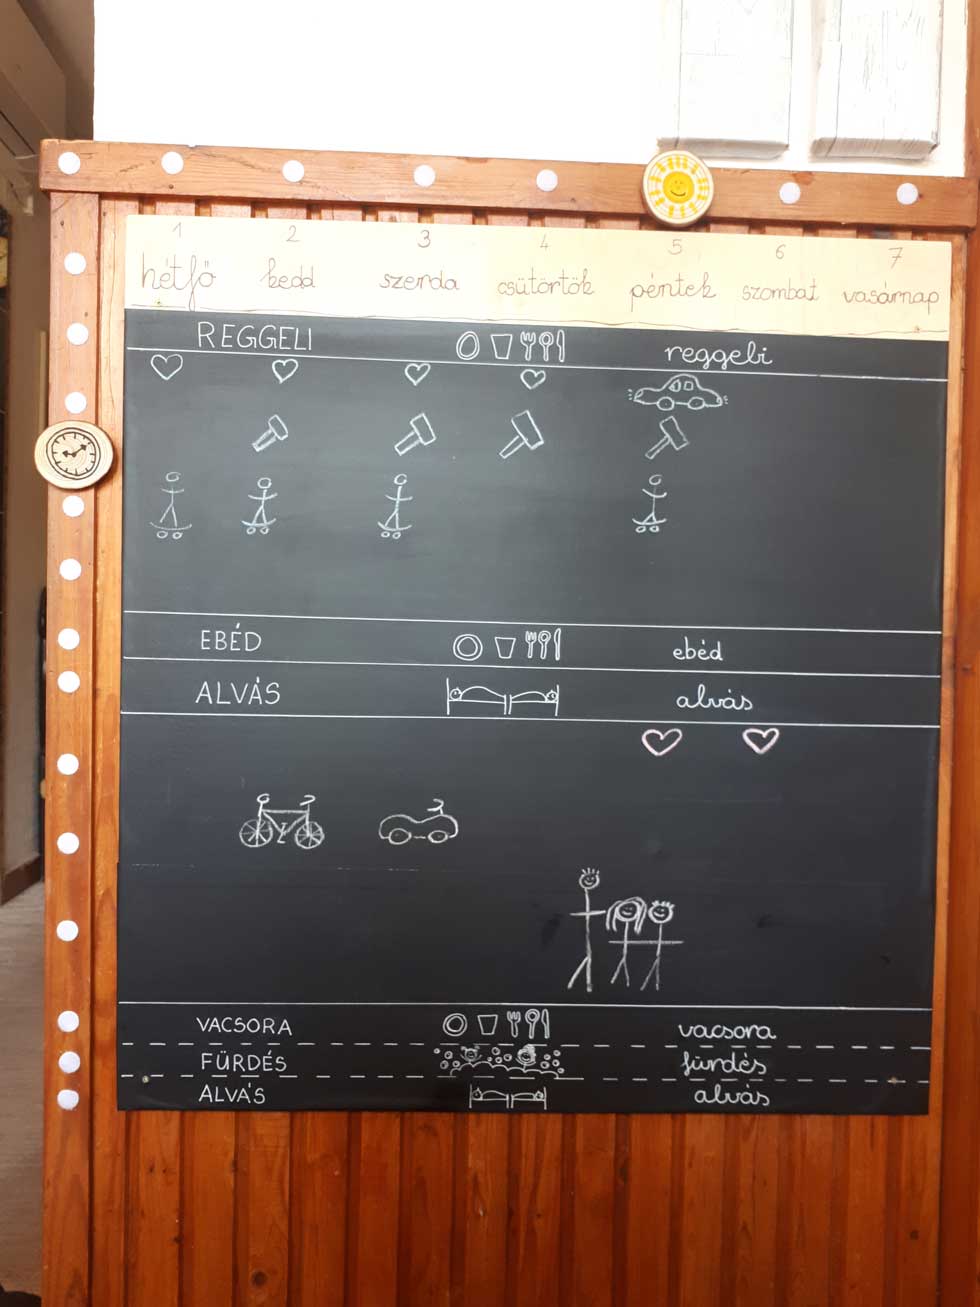 1 2 3 4 5 6 7
hétfő kedd szerda csütörtök péntek szombat vasárnap
REGGELI reggeli
EBÉD ebéd
ALVÁS alvás
VACSORA vacsora
FÜRDÉS fürdés
ALVÁS alvás